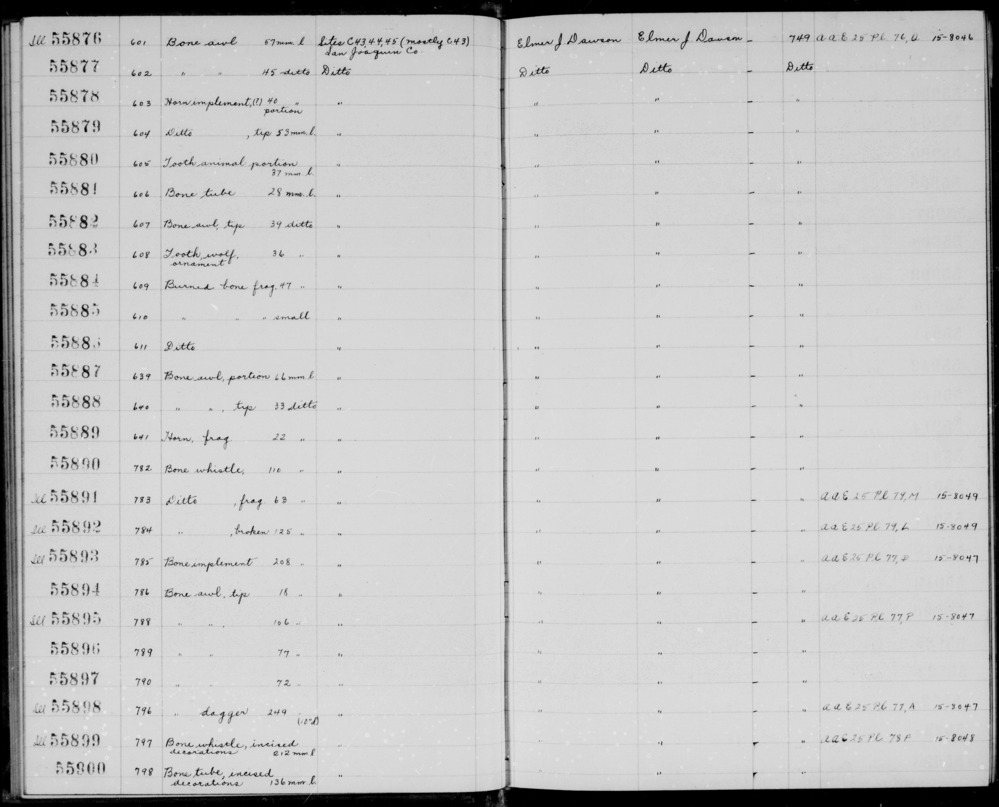 Ill 55876 601 Bone awl 57 mm. l Sites C43,44,45 (mostly C43) San Joaquin Co. Elmer J Dawson Elmer J Dawson – 749 AAE 25 Pl 76, 15-8046
55877 602 " " 45 ditto Ditto Ditto Ditto – Ditto
55878 603 Horn implement, (?) portion 40 " " " " – "
55879 604 Ditto , tip 53 mm. l. " " " – "
55880 605 Tooth animal portion 37 mm l. " " " – "
55881 606 Bone tube 28 mm. l. " " " – "
55882 607 Bone awl, tip 39 ditto " " " – "
55883 608 Tooth, wolf, ornament 36 " " " " – "
55884 609 Burned bone frag. 47 " " " " – "
55885 610 " " " small " " " – "
5588 611 Ditto " " " – "
55887 639 Bone awl, portion 66 mm l. " " " – "
55888 640 " ", tip 33 ditto " " " – "
55889 641 Horn, frag 22 " " " " – "
55890 782 Bone whistle, 110 " " " " – "
Ill 55891 783 Ditto , frag 63 " " " " – " AAE 25 Pl 79, M 15-8049
Ill 55892 784 " , broken 125 " " " " – " AAE 25 Pl 79, L 15-8049
Ill 55893 785 Bone implement 208 " " " " – " AAE 25 Pl 77, 15-8047
55894 786 Bone awl, tip 18 " " " " – "
Ill 55895 788 " ", 106 " " " " – " AAE 25 Pl 77, P 15-8047
55896 789 " " 77 " " " " – "
55897 790 " " 72 " " " " – "
Ill 55898 796 " dagger 249 " " " " – " AAE 25 Pl 77, A 15-8047
Ill 55899 797 Bone whistle, incised decorations 212 mm l " " " " AAE 25 Pl 78 P 15-8048
55900 798 Bone tube, incised decorations 136 mm l. " " " "